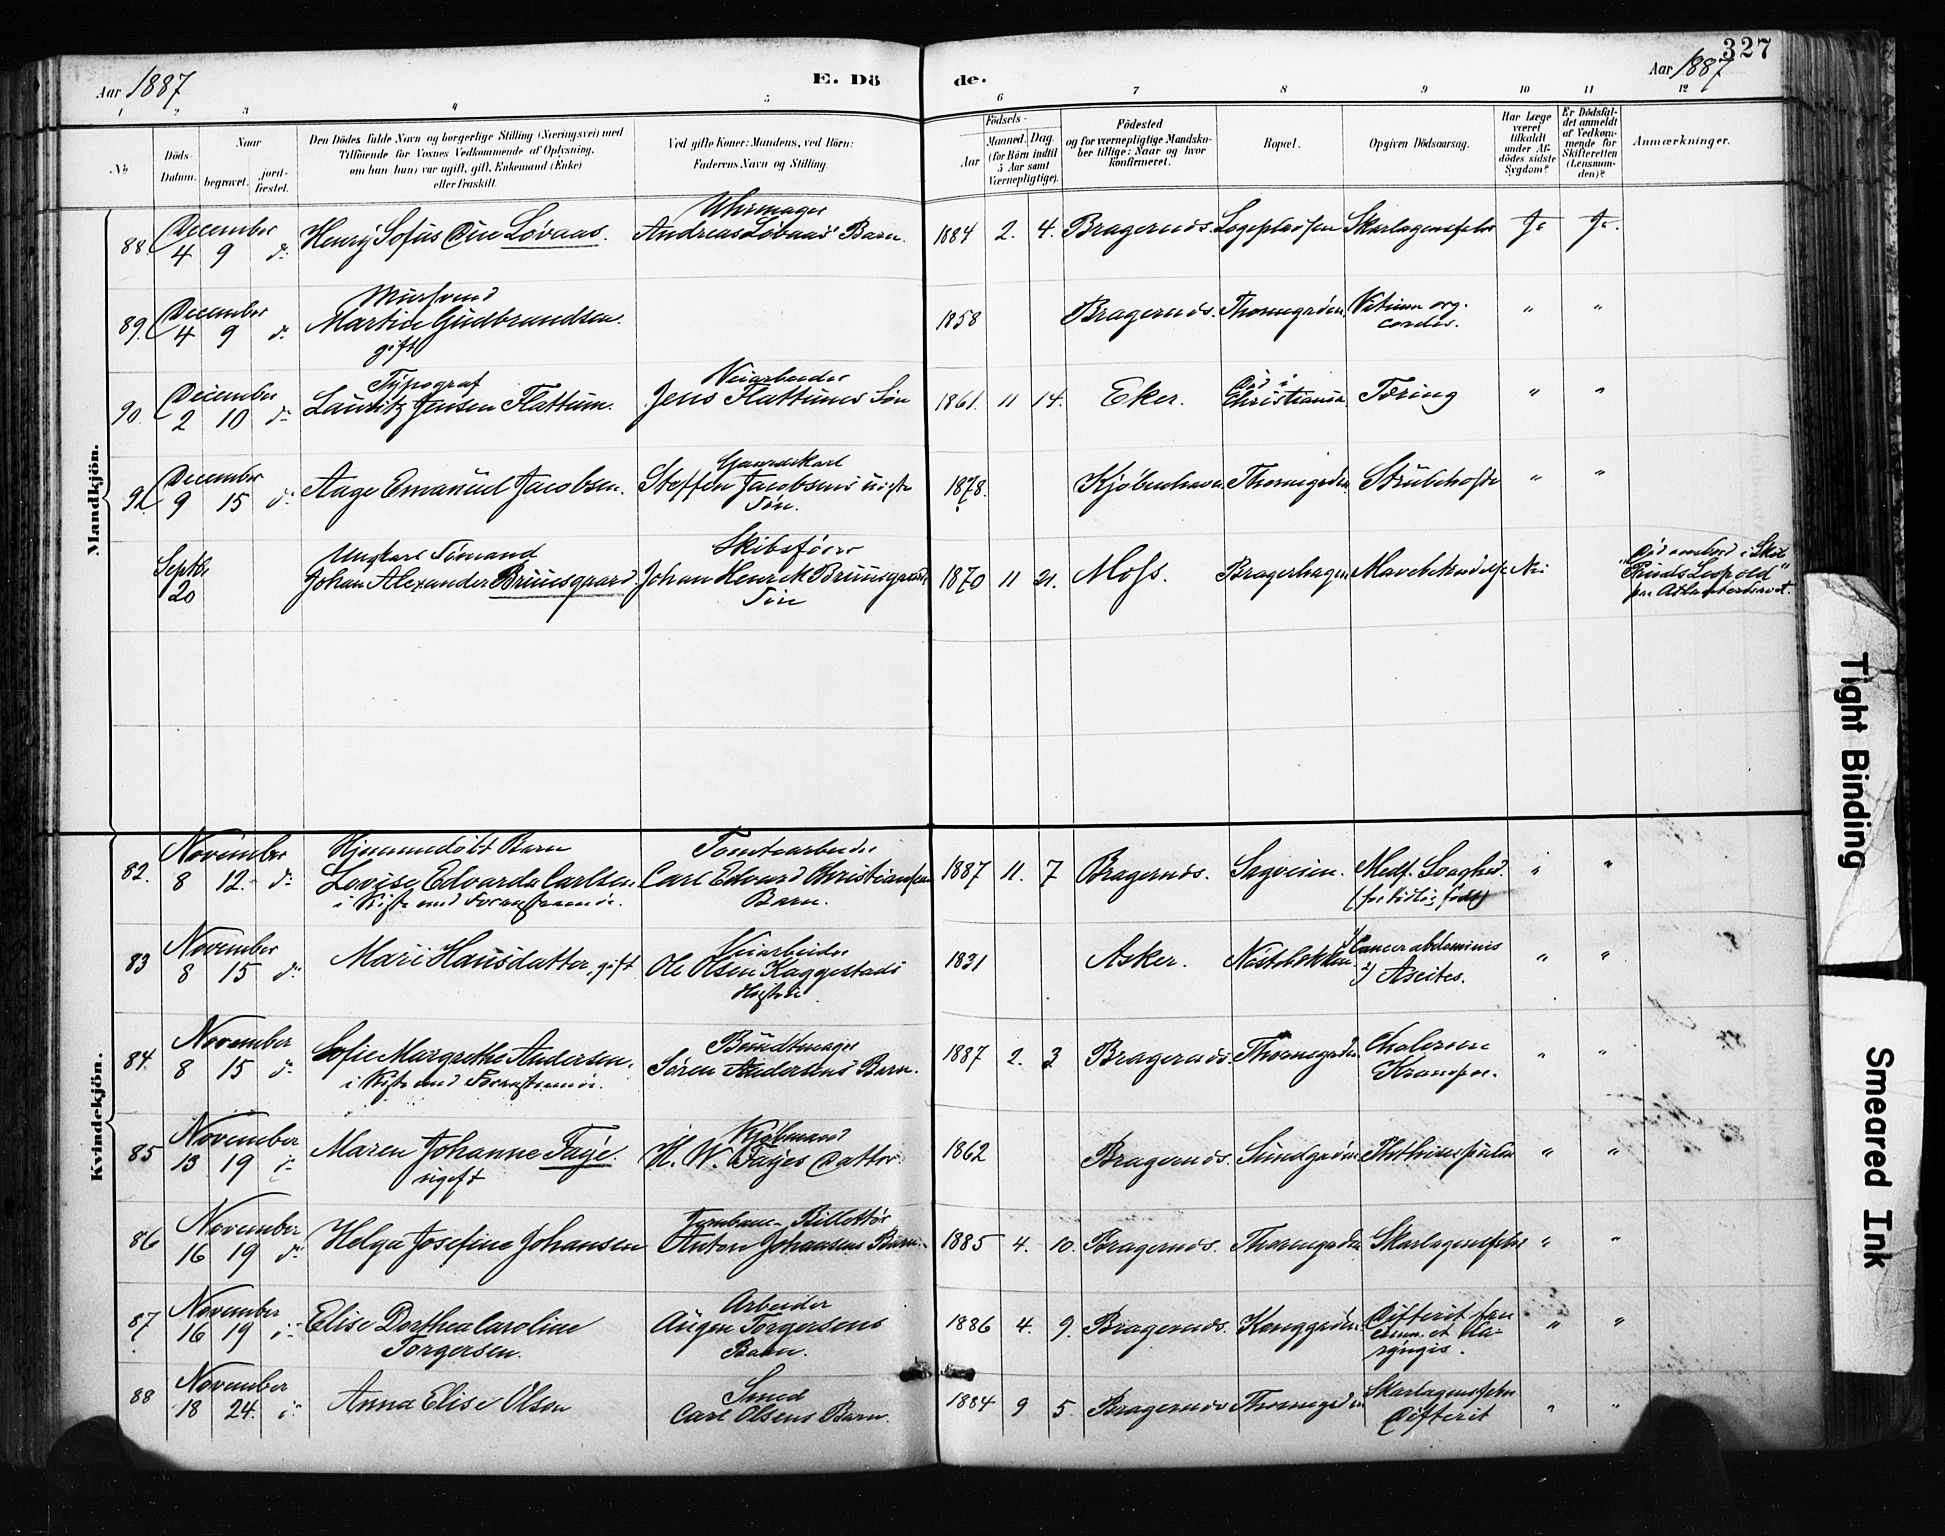 327
Aar 1887
E. Döde.
Aar 1887
1 2 3 4 5 6 7 8 9 10 11 12
No
Döds-Datum.
Naar
begravet.
jord-fæstet.
Den Dödes fulde Navn og borgerlige Stilling (Næringsvei) med
Tilföiende for Voxnes Vedkommende af Oplysning,
om han (hun) var ugift, gift, Enkemand (Enke)
eller fraskilt.
Ved gifte Koner: Mandens, ved Börn:
Faderens Navn og Stilling.
Födsels-
Aar
Maaned. Dag.
(for Börn indtil
5 Aar samt
Værnepligtige).
Födested
og for værnepligtige Mandska-
ber tillige: Naar og hvor
konfirmeret.
Bopæl.
Opgiven Dödsaarsag.
Har Læge
været
tilkaldt
under Af-
dödes sidste
Sygdom?
Er Dödsfal-
det anmeldt
af Vedkom-
mende for
Skifteretten
(Lensman-
den)?
Anmærkninger.
Mandkjön.
88 December 4 9 d: Henry Sofus Due Lövaas. Uhrmager Andreas Lövaas' Barn. 1884 2. 4. Bragernæs. Skarlagensfeber Ja Ja.
89. December 4 9 d: Murσvend Martin Gudbrandsen. gift 1858 Bragernæs. Thornegaden Vitium org. cordis.
" "
90. December 2 10 d: Typograf Lauritz Jensen Flattum. Veiarbeider Jens Flattums Sön 1861. 11 14. Eker. Död i Christiania. Tæring " "
92. December 9 15 d: Aage Emanuel Jacobsen. Gaardskarl Steffen Jacobsens Sön. 1878. Kjöbenhavn. Thornegaden Strubehoste " "
Septbr 20 Ungkarl Sömand Johan Alexander Bruusgaard. Skibsförer Johan Henrik Bruusgaards Sön 1870 11 21. Moss. Bragerhagen Nei Död ombord i Skib "Prinds Leopold" paa Atlanterhavet.
Kvindekjön.
82. November 8 12. d: Hjemmedöbt Barn Lovise Edvarda Carlsen i Kiste med Tomtearbeider Carl Edvard Christiansens Barn. 1887 11. 7 Bragernæs. Sagveien. Medf. Svaghed. (for tidlig födt) " "
83 November 8 15 d: Mari Hansdatter, gift Veiarbeider Ole Olsen Kaggestads Hustru 1831 Asker. 1) Cancer abdominis 2) Ascites. " "
84. November 8 15 d: Sofie Margrethe Andersen. i Kiste med Bundtmager Sören Andersens Barn. 1887 2. 3 Bragernæs. Thornegaden Cholerine Krampe. " "
85 November 13 19 d: Maren Johanne Faye. ugift Kjöbmand H. W. Fayes Datter. 1862 Bragernæs. Sundgaden " "
86 November 16 19 d: Helga Josefine Johansen Jernbane-Billettör Anton Johansens Barn. 1885 4. 10. Bragernæs. Thornegaden Skarlagensfeber " "
87 November 16 19 d: Elise Dorthea Caroline Torgersen. Arbeider Augen Torgersens Barn. 1886 4. 9. Bragernæs. Konggaden Difterit faucium et laryngis. " "
88 November 18 24. d: Anna Elise Olsen Smed Carl Olsens Barn. 1884 9 5. Bragernæs Thornegaden Skarlagensfeber Difterit " "
Tight Binding
Smeared Ink